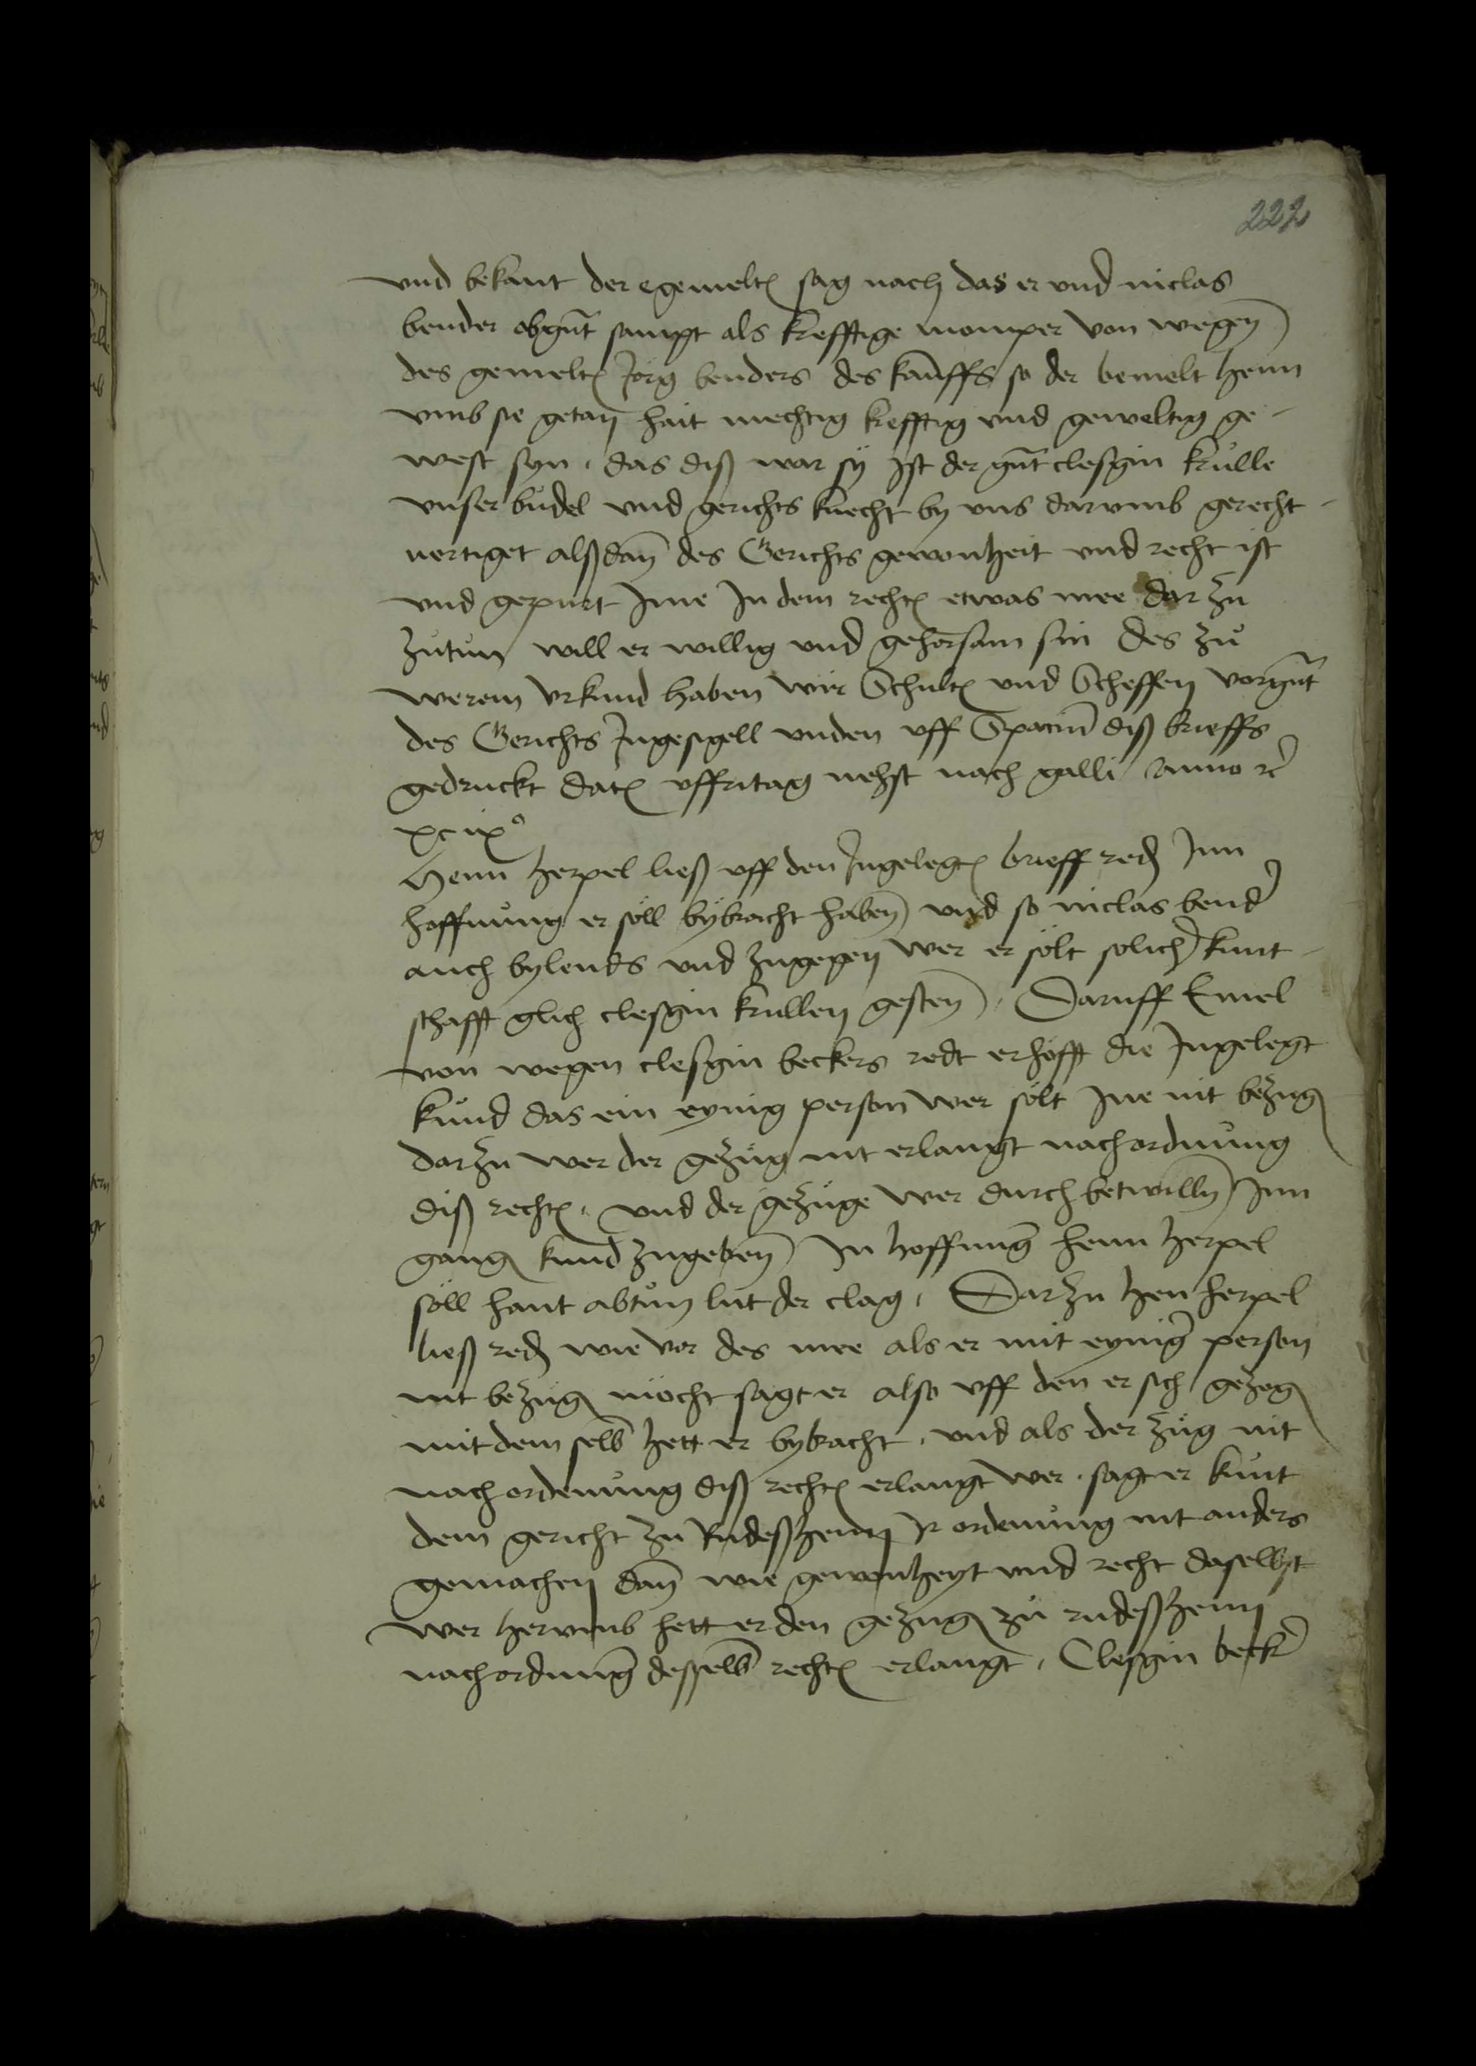 222
vnd bekant der egemelt sag nach das er vnd niclas
bender obgnt sampt als krefftige momper von wegen
des gemelt Jorg benders des kauffs so der bemelt henn
vmb sie getan hait mechtig krefftig vnd geweltig ge-
west syn, das diß war sy Ist der gnt clesgin krulle
vnser budel vnd gerichts knecht by vns darvmb gerecht-
uertiget alßdan des Gerichts gewonheit vnd recht ist
vnd gepurt Jme In dem recht etwas mee dar zu
zutun will er willig vnd gehorsam sin des zu
werem vrkund haben wir Schult vnd Scheffen vorgnt
des Gerichts Ingesigell vnden vff Spacium diß brieffs
gedruckt dat vff fritag nehst nach galli Anno rc
xcixo
Henn herpel ließ vff den Ingelegt brieff red Inn
hoffnung er söll bybracht haben vnd so niclas bend
auch bylends vnd zugegen wer er solt solich kunt-
schafft glich clesgin krullen gesten, Daruff Emel
von wegen clesgin beckers redt er hofft die Ingelegt
kund das ein eynig person wer solt Ine nit bezug
darzu wer der gezug nit erlangt nach ordnung
diß recht, vnd der gezuge wer durch betwilln Inn
gang kund zugeben In hoffnung henn herpel
söll hant abtun lut der clag, Darzu hen herpel
ließ red wie vor des mee als er mit eynig person
nit bezug mocht sagt er also vff den er sich gezog
mit dem selb hett er bybracht, vnd als der zug nit
nach ordenung diß recht erlangt wer, sagt er kunt
dem gericht zu Rudeßhem Ir ordenung nit anders
gemachen dan wie gewonheyt vnd recht daselbst
wer hervmb hett er den gezug zu rudeßhem
nach ordnung desselb recht erlangt, Clesgin beck